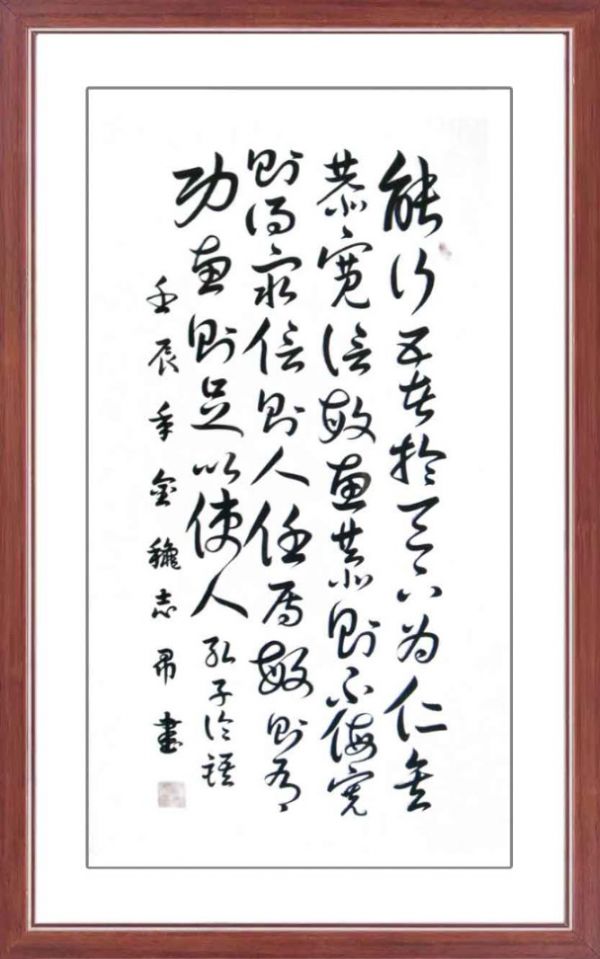 能行五者於天下为仁矣
恭宽信敏惠恭则不侮宽
则得众信则人任焉敏则有
功惠则足以使人孔子论语
壬辰年金志書